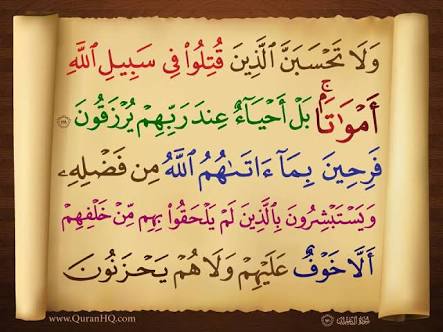 وَلَا تَحْسَبَنَّ ٱلَّذِينَ قُتِلُوا۟ فِى سَبِيلِ ٱللَّهِ
أَمْوَٰتًۢا ۚ بَلْ أَحْيَآءٌ عِندَ رَبِّهِمْ يُرْزَقُونَ ﴿١٦٩﴾
فَرِحِينَ بِمَآ ءَاتَىٰهُمُ ٱللَّهُ مِن فَضْلِهِۦ
وَيَسْتَبْشِرُونَ بِٱلَّذِينَ لَمْ يَلْحَقُوا۟ بِهِم مِّنْ خَلْفِهِمْ
أَلَّا خَوْفٌ عَلَيْهِمْ وَلَا هُمْ يَحْزَنُونَ
www.QuranHQ.com